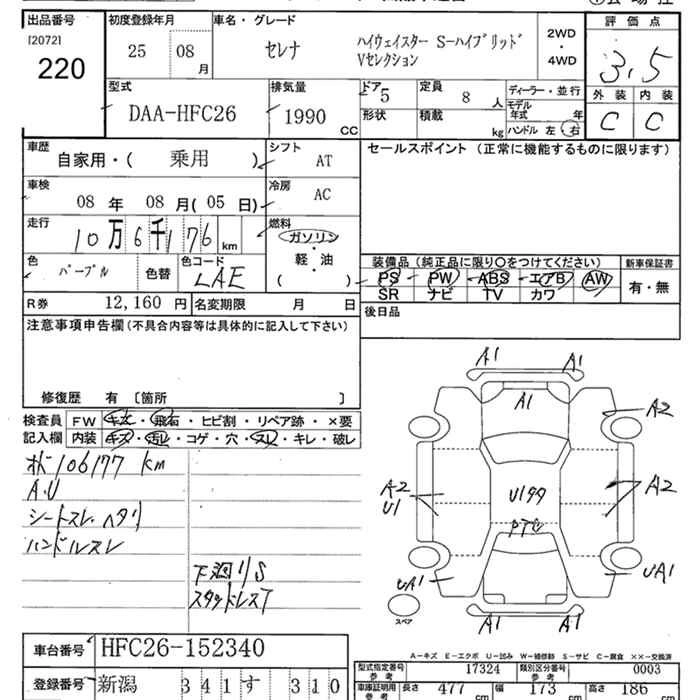 出品番号 初度登録年月 車名・グレード 評価点
[2072]
220
25 08 月
セレナ
ハイウェイスター S-ハイブリッド
Vセレクション
2WD
・
4WD
3.5
型式 排気量 ドア 定員 ディーラー・並行 外装 内装
DAA-HFC26 1990 CC 5 8 人
モデル年式 年
形状 積載 kg ハンドル 左 右
C C
車歴 自家用・( 乗用 )
シフト AT
セールスポイント (正常に機能するものに限ります)
車検 08 年 08 月(05 日)
冷房 AC
走行 10万6千176 km
燃料 ガソリン
軽・油
( )
色 パープル 色替 色コード LAE
装備品 (純正品に限り○をつけてください) 新車保証書
PS PW ABS エアB AW
SR ナビ TV カワ
有・無
R券 12,160 円 名変期限 月 日
後日品
注意事項申告欄 (不具合内容等は具体的に記入して下さい)
修復歴 有 〔箇所 〕
検査員 FW キズ・飛石・ヒビ割・リペア跡・×要
記入欄 内装 キズ・汚レ・コゲ・穴・スレ・キレ・破レ
106177 km
A.U
シートスレ、ヘタリ
ハンドルスレ
下廻りS
スタッドレスT
A1 A1
A1
A2
A2
U1
U199
A2
UA1
UA1
A1 A1
スペア
A-キズ E-エクボ U-凹み W-補修跡 S-サビ C-腐食 ××-交換済
車台番号 HFC26-152340
型式指定番号 参考 17324 類別区分番号 参考 0003
登録番号 新潟 341 す 310
車庫証明用 参考 長さ 477 cm 幅 173 cm 高さ 186 cm